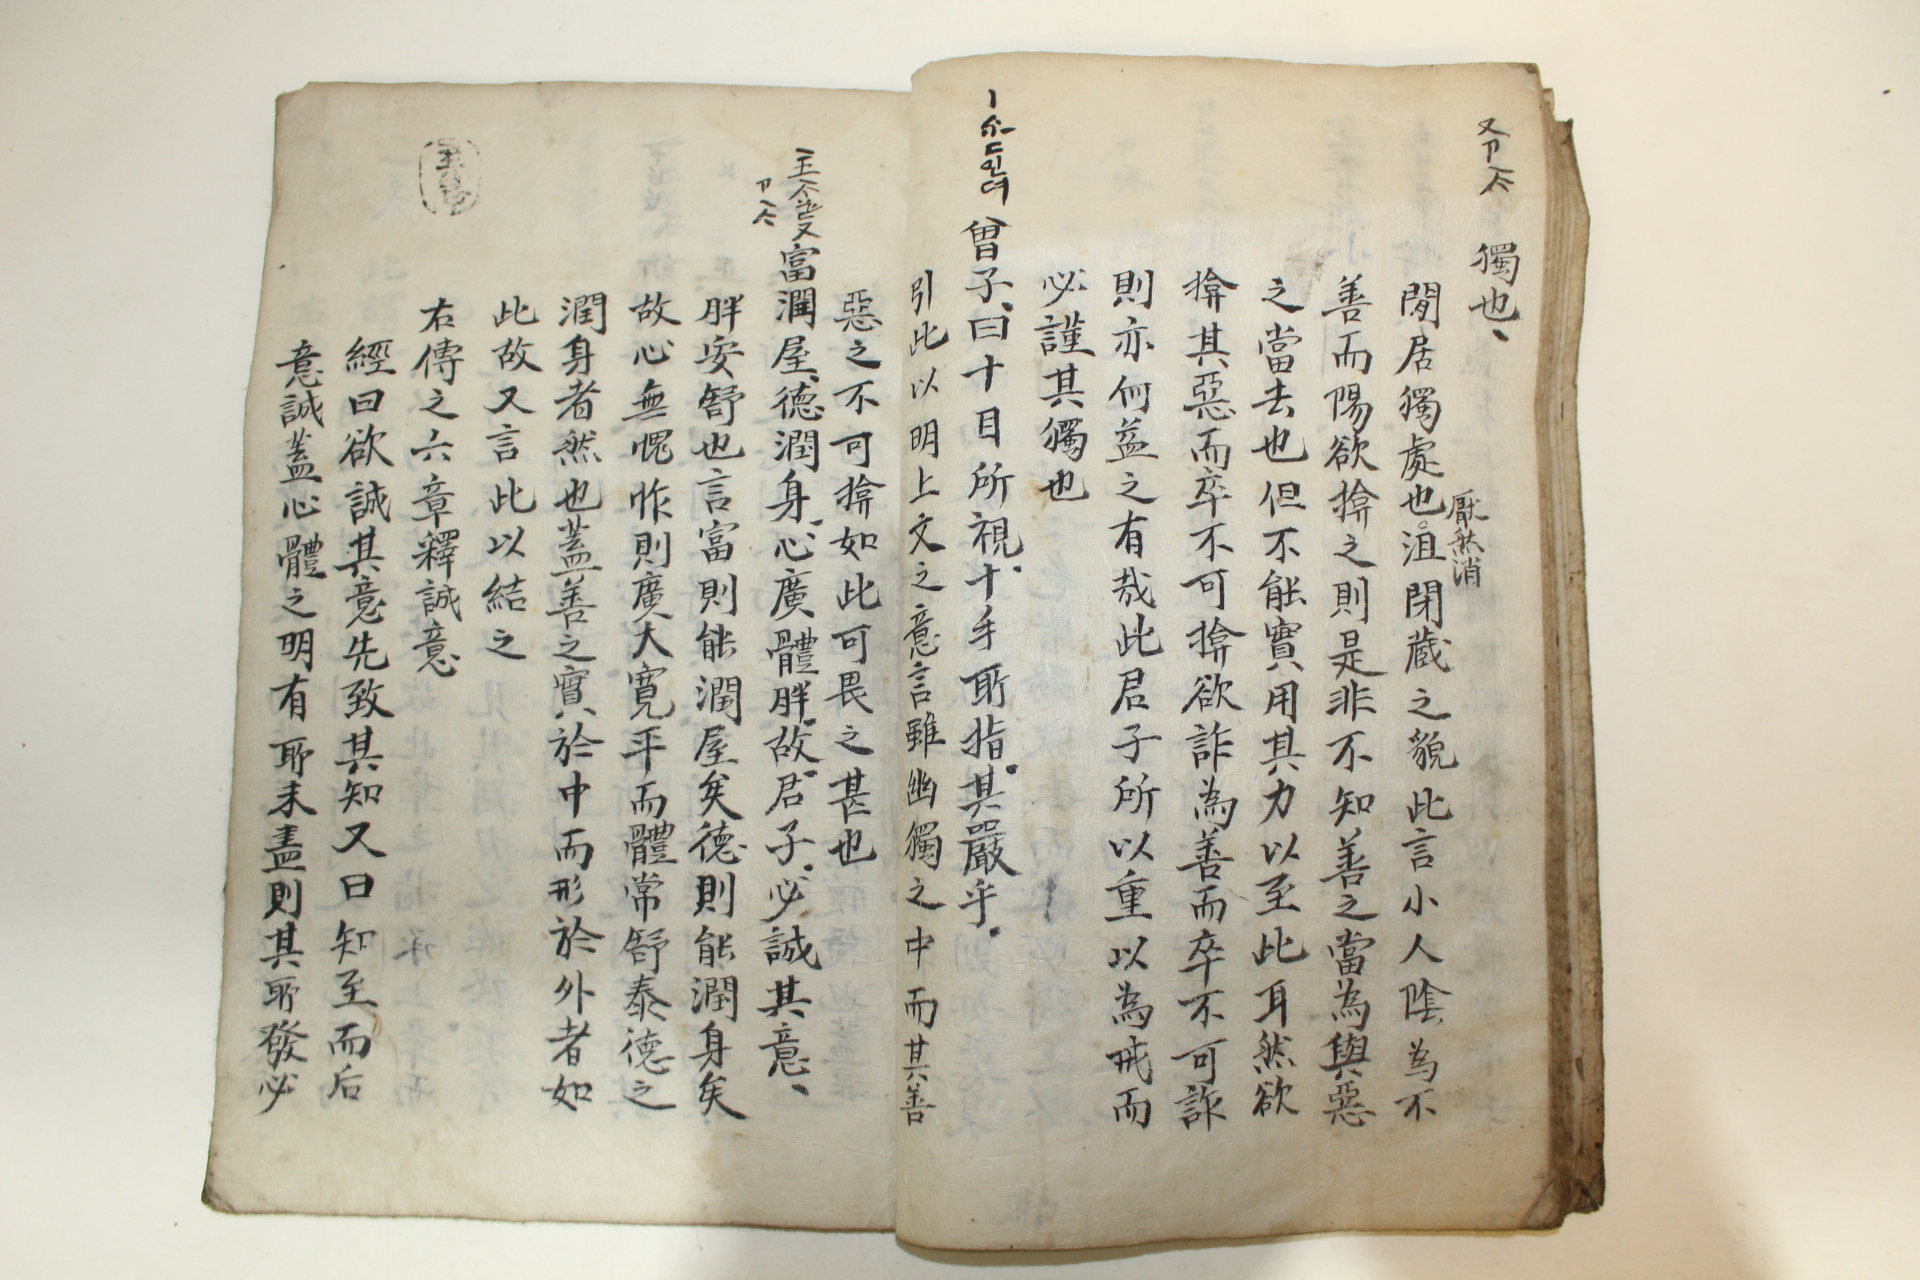 獨也、
厭然消
閒居獨處也。沮閉蔵之貌此言小人陰為不
善而陽欲揜之則是非不知善之當為與惡
之當去也但不能實用其力以至此耳然欲
揜其惡而卒不可揜欲詐為善而卒不可詐
則亦何益之有哉此君子所以重以為戒而
必謹其獨也
曾子、曰十目所視、十手所指、其嚴乎、
引此以明上文之意言雖幽獨之中而其善
惡之不可揜如此可畏之甚也
富潤屋、德潤身、心廣體胖、故君子、必誠其意、
胖安舒也言富則能潤屋矣德則能潤身矣
故心無愧怍則廣大寬平而體常舒泰德之
潤身者然也蓋善之實於中而形於外者如
此故又言此以結之
右傳之六章釋誠意
經曰欲誠其意先致其知又曰知至而后
意誠蓋心體之明有所未盡則其所發必